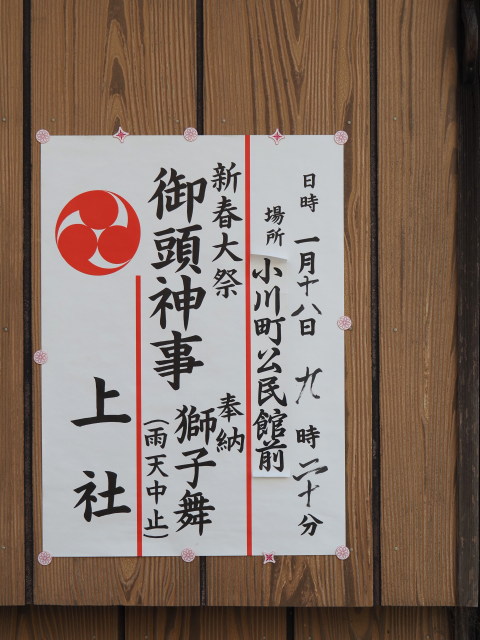 日時 一月十八日 九時二十分
場所 小川町公民館前
新春大祭
奉納
御頭神事
獅子舞
(雨天中止)
上社